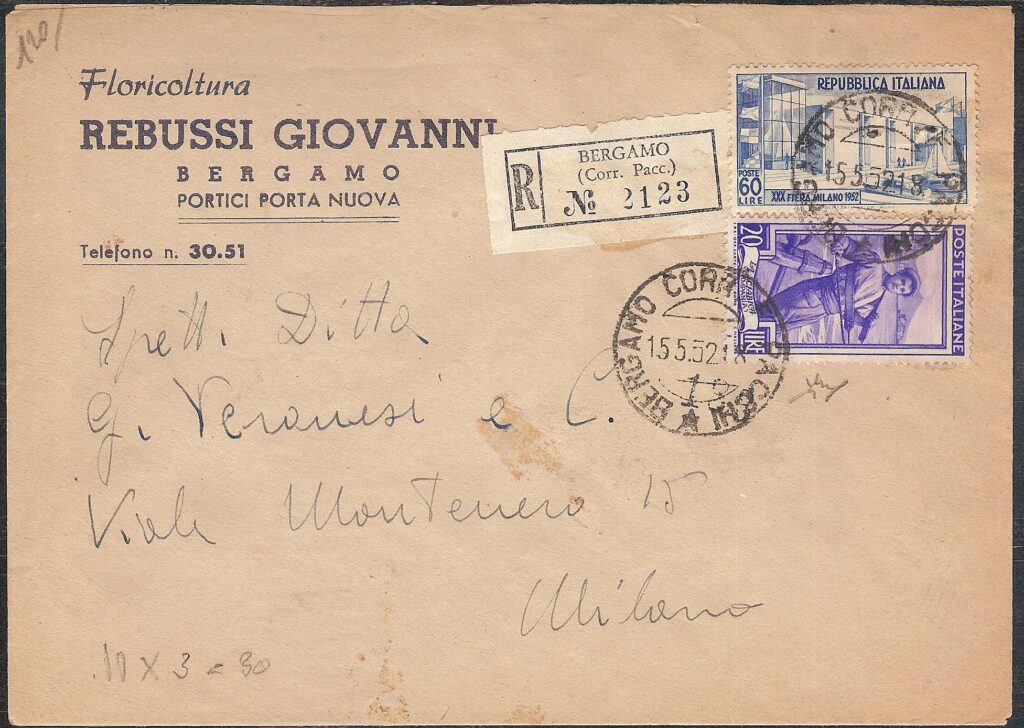 120/
Floricoltura
REBUSSI GIOVANNI
BERGAMO
PORTICI PORTA NUOVA
Telefono n. 30.51
R
BERGAMO
(Corr. Pacc.)
№ 2123
REPUBBLICA ITALIANA
POSTE
60
LIRE
XXX FIERA MILANO 1952
BERGAMO CORR E PACCHI
15.5.52.18
20
LIRE
POSTE ITALIANE
BERGAMO CORR E PACCHI
15.5.52.18
1
Spett. Ditta
G. Veronesi e C.
Viale Montenero 15
Milano
10 x 3 = 30